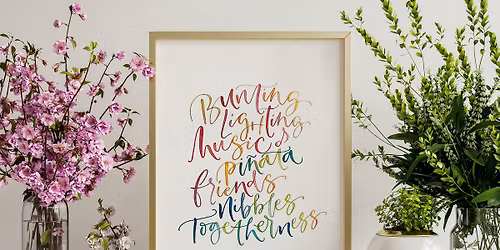 Bunting
Lighting
Music
Piñata
friends
Nibbles
Togetherness